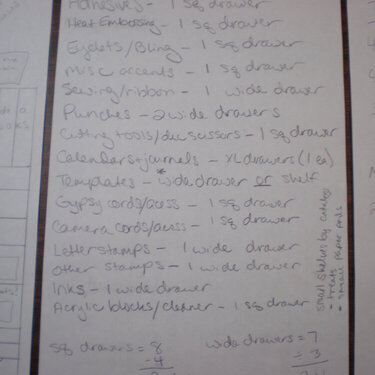 Adhesives - 1 sq drawer
Heat Embossing - 1 sq drawer
Eyelets/Bling - 1 sq drawer
Misc accents - 1 sq drawer
Sewing/ribbon - 1 wide drawer
Punches - 2 wide drawers
Cutting tools/dec scissors - 1 sq drawer
Calendars + journals - XL drawers (1 ea)
Templates - *wide drawer or shelf
Gypsy cords/acess - 1 sq drawer
Camera cords/acess - 1 sq drawer
Letter stamps - 1 wide drawer
Other stamps - 1 wide drawer
Inks - 1 wide drawer
Acrylic blocks/cleaner - 1 sq drawer
small shelves by
- treats
- small paper pads
sq drawers = 8
- 4
wide drawers = 7
- 3